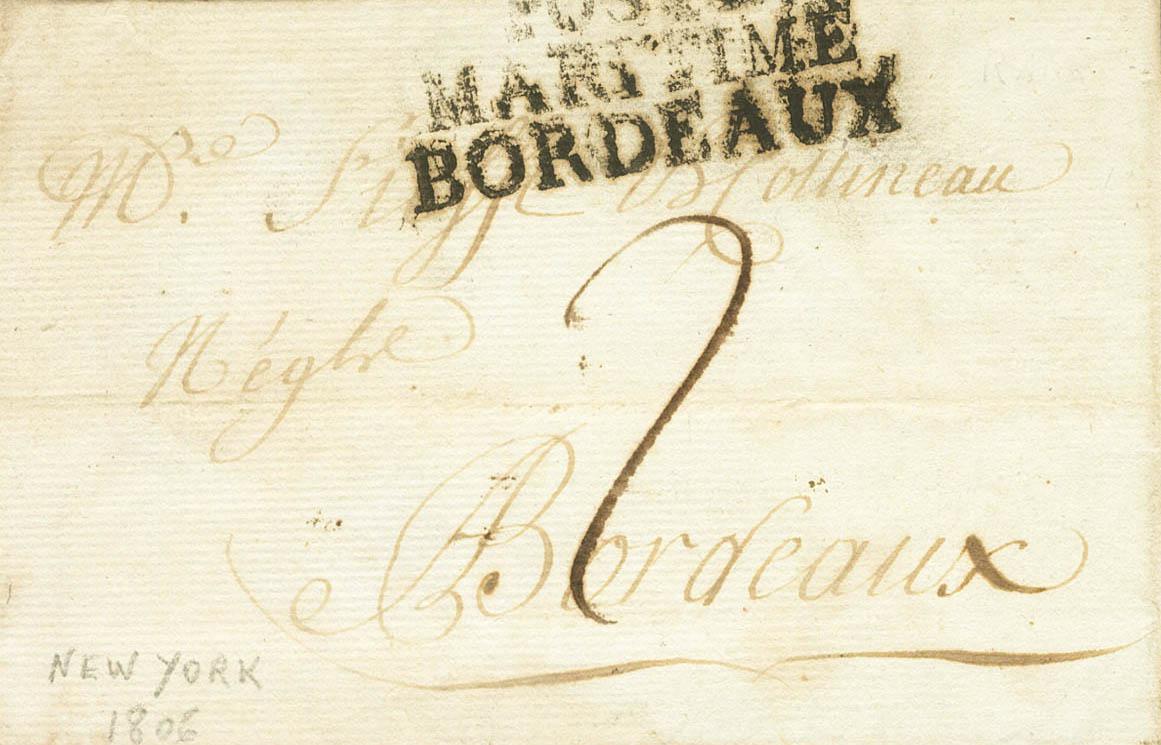 POSTES
MARITIME
BORDEAUX
Mre Mollineau
Négt
2
Bordeaux
NEW YORK
1806